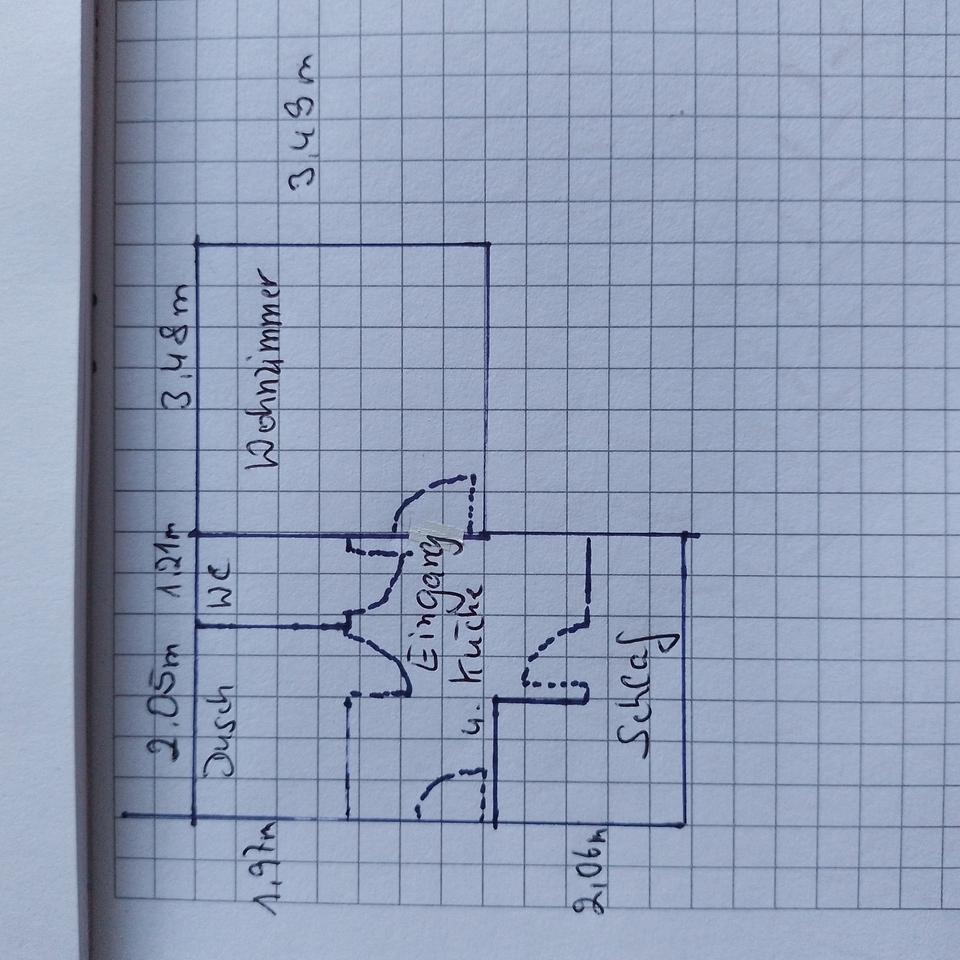 2.05m
1.21m
3.48m
3.49m
Dusch
WC
Wohnzimmer
Eingang
u. Küche
Schlaf
1.97m
2.06m